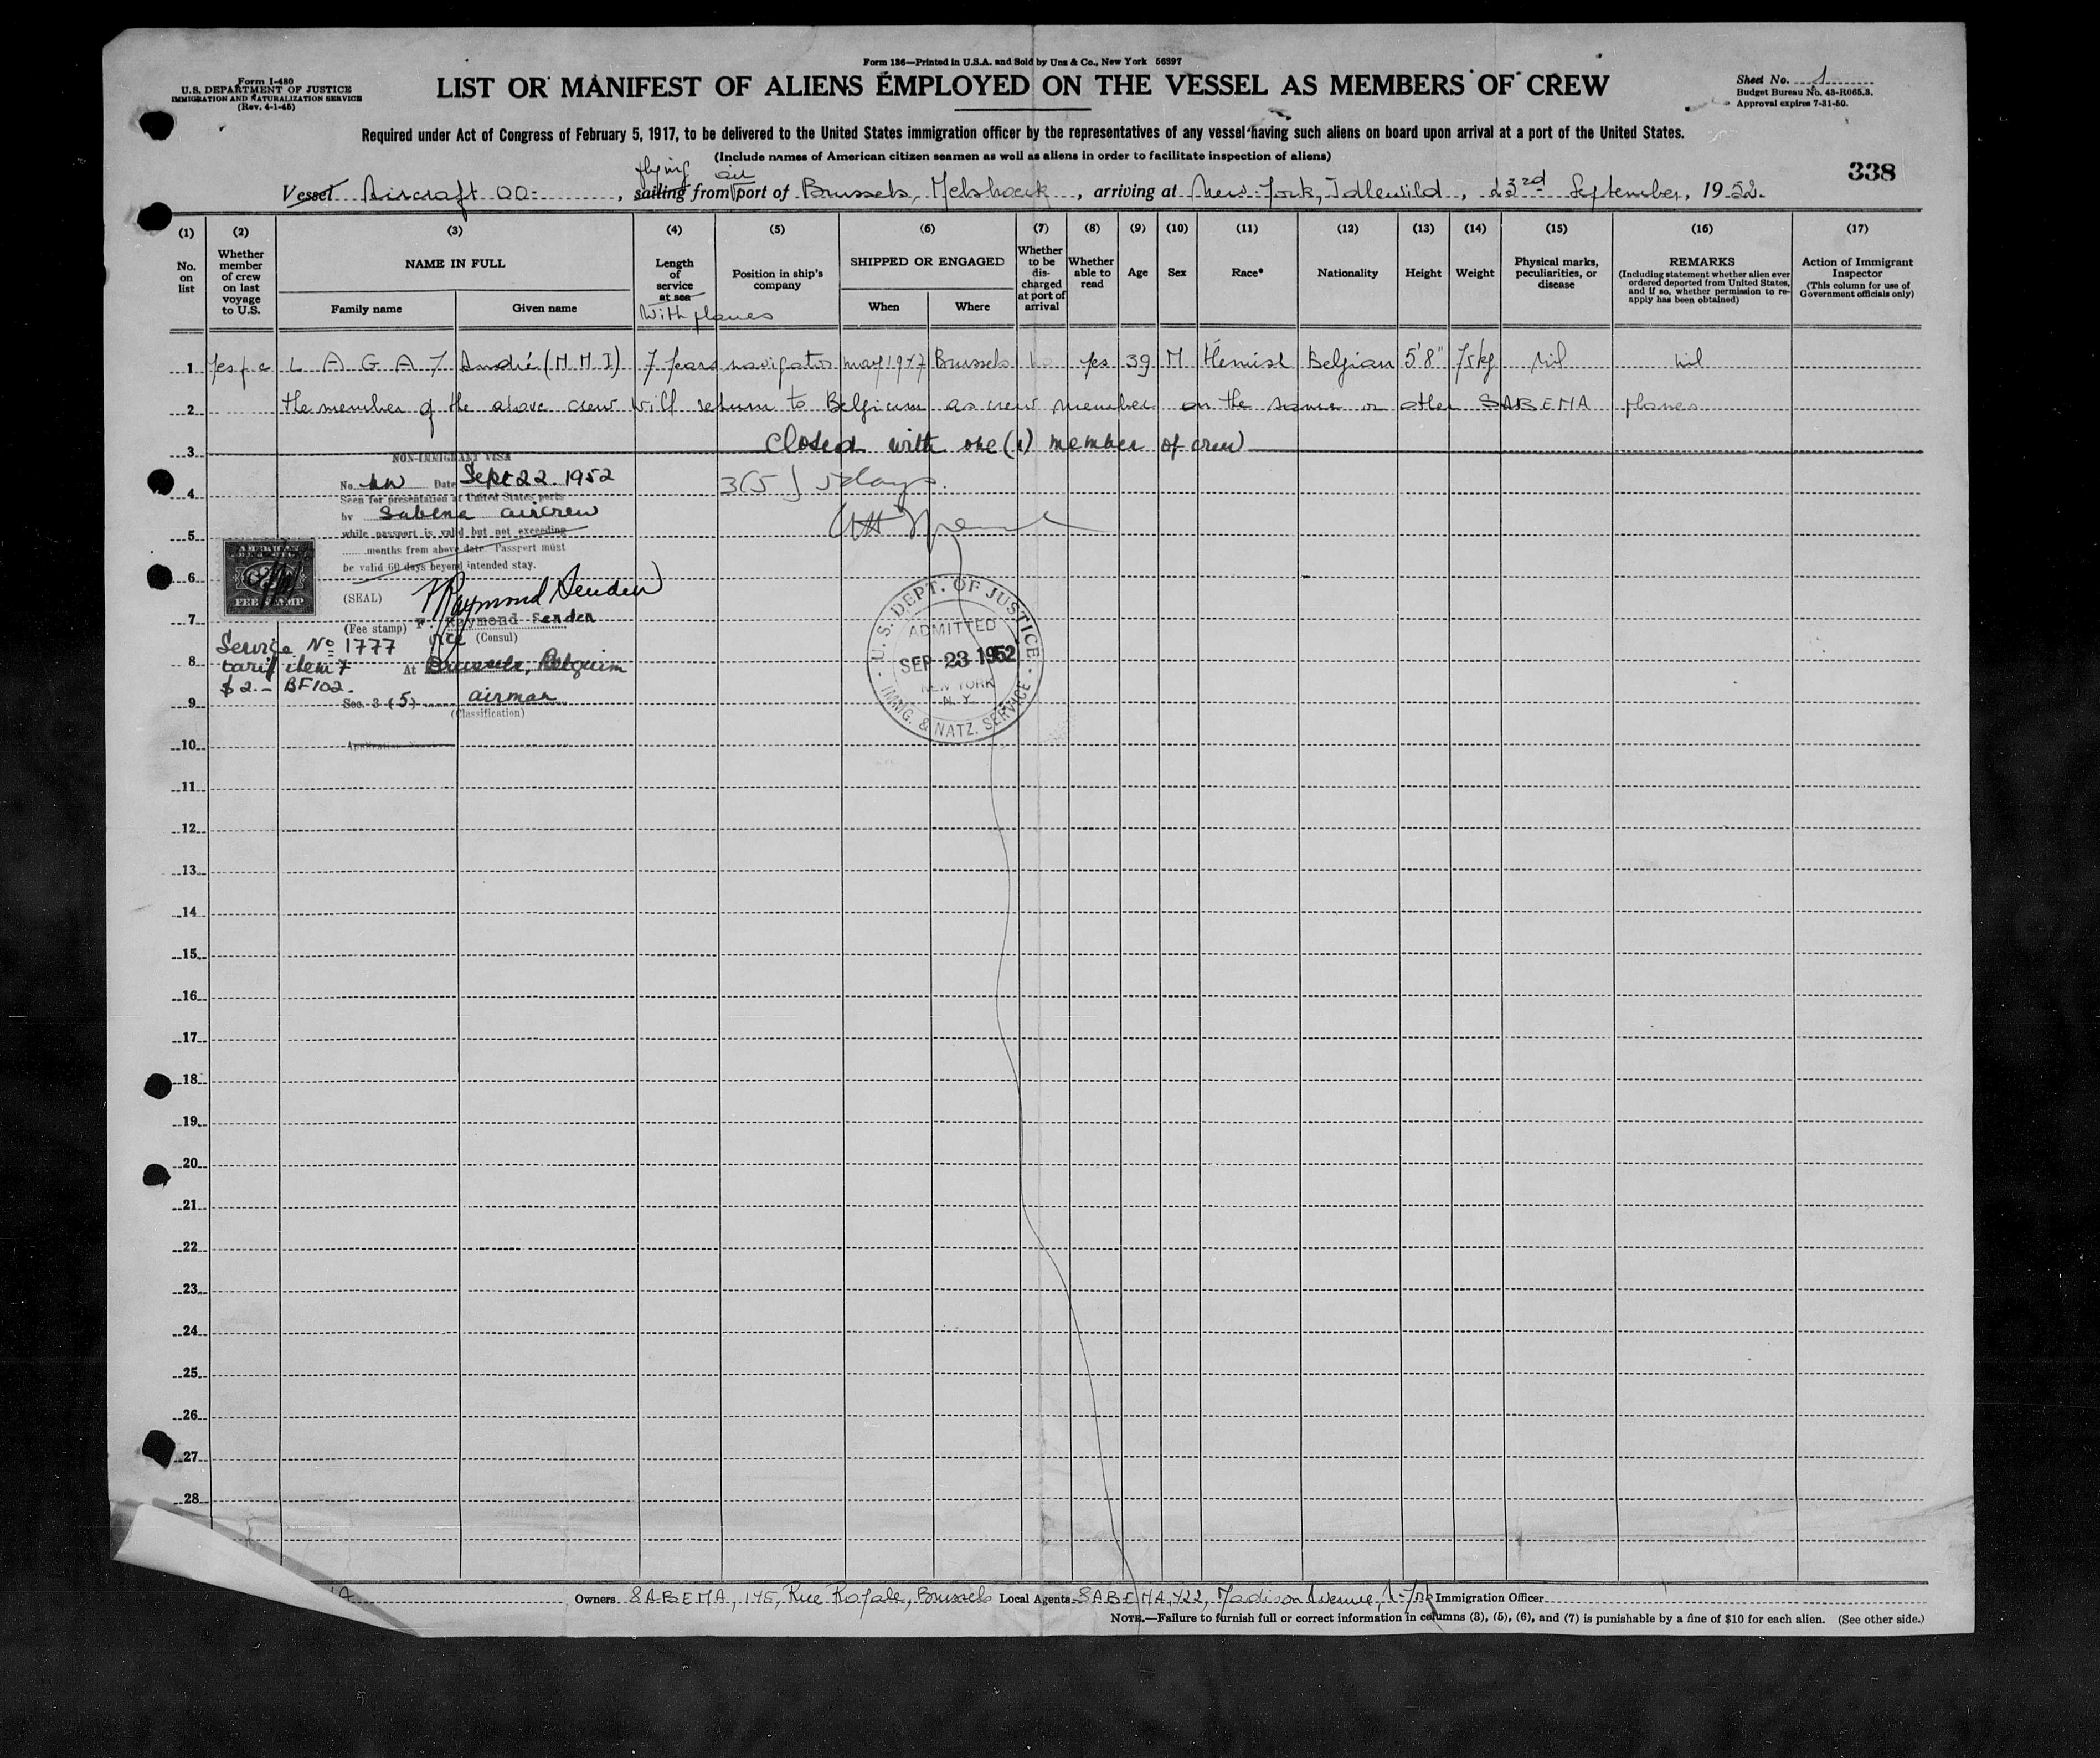 Form 136—Printed in U.S.A. and Sold by Unz & Co., New York 56897
Form I-480
U.S. DEPARTMENT OF JUSTICE
IMMIGRATION AND NATURALIZATION SERVICE
(Rev. 4-1-45)
LIST OR MANIFEST OF ALIENS EMPLOYED ON THE VESSEL AS MEMBERS OF CREW
Sheet No. 1
Budget Bureau No. 43-R065.3.
Approval expires 7-31-50.
Required under Act of Congress of February 5, 1917, to be delivered to the United States immigration officer by the representatives of any vessel having such aliens on board upon arrival at a port of the United States.
(Include names of American citizen seamen as well as aliens in order to facilitate inspection of aliens)
338
flying air
Vessel Aircraft OO- , sailing from port of Brussels, Melsbroek , arriving at New-York, Idlewild , 23rd September, 1952.
(1) (2) (3) (4) (5) (6) (7) (8) (9) (10) (11) (12) (13) (14) (15) (16) (17)
No. on list
Whether member of crew on last voyage to U.S.
NAME IN FULL
Family name
Given name
Length of service at sea
With planes
Position in ship's company
SHIPPED OR ENGAGED
When
Where
Whether to be discharged at port of arrival
Whether able to read
Age
Sex
Race*
Nationality
Height
Weight
Physical marks, peculiarities, or disease
REMARKS
(Including statement whether alien ever ordered deported from United States, and if so, whether permission to re-apply has been obtained)
Action of Immigrant Inspector
(This column for use of Government officials only)
1 yes L A G A Y André (M M I) 7 years navigator may 1947 Brussels no yes 39 M Flemish Belgian 5'8" 75kg nil nil
2 the member of the above crew will return to Belgium as crew member on the same or other SABENA planes
3 Closed with one (1) member of crew
NON-IMMIGRANT VISA
No. Date Sept 22. 1952
Seen for presentation at United States ports
by Sabena aircrew
while passport is valid but not exceeding
months from above date. Passport must
be valid 60 days beyond intended stay.
(SEAL)
F Raymond Senden
(Fee stamp) F. Raymond Senden
Vice (Consul)
At Brussels, Belgium
Sec. 3 (5) airman
(Classification)
AMERICAN
FEE STAMP
Service No 1777
tarif item 7
$2.- BF102.
3(5) 5 days.
U.S. DEPT. OF JUSTICE
ADMITTED
SEP 23 1952
NEW YORK
N. Y.
IMMG. & NATZ. SERVICE
4
5
6
7
8
9
10
11
12
13
14
15
16
17
18
19
20
21
22
23
24
25
26
27
28
Owners SABENA, 145, Rue Royale, Brussels Local Agents SABENA, 422, Madison Avenue, N-York Immigration Officer
NOTE.—Failure to furnish full or correct information in columns (3), (5), (6), and (7) is punishable by a fine of $10 for each alien. (See other side.)